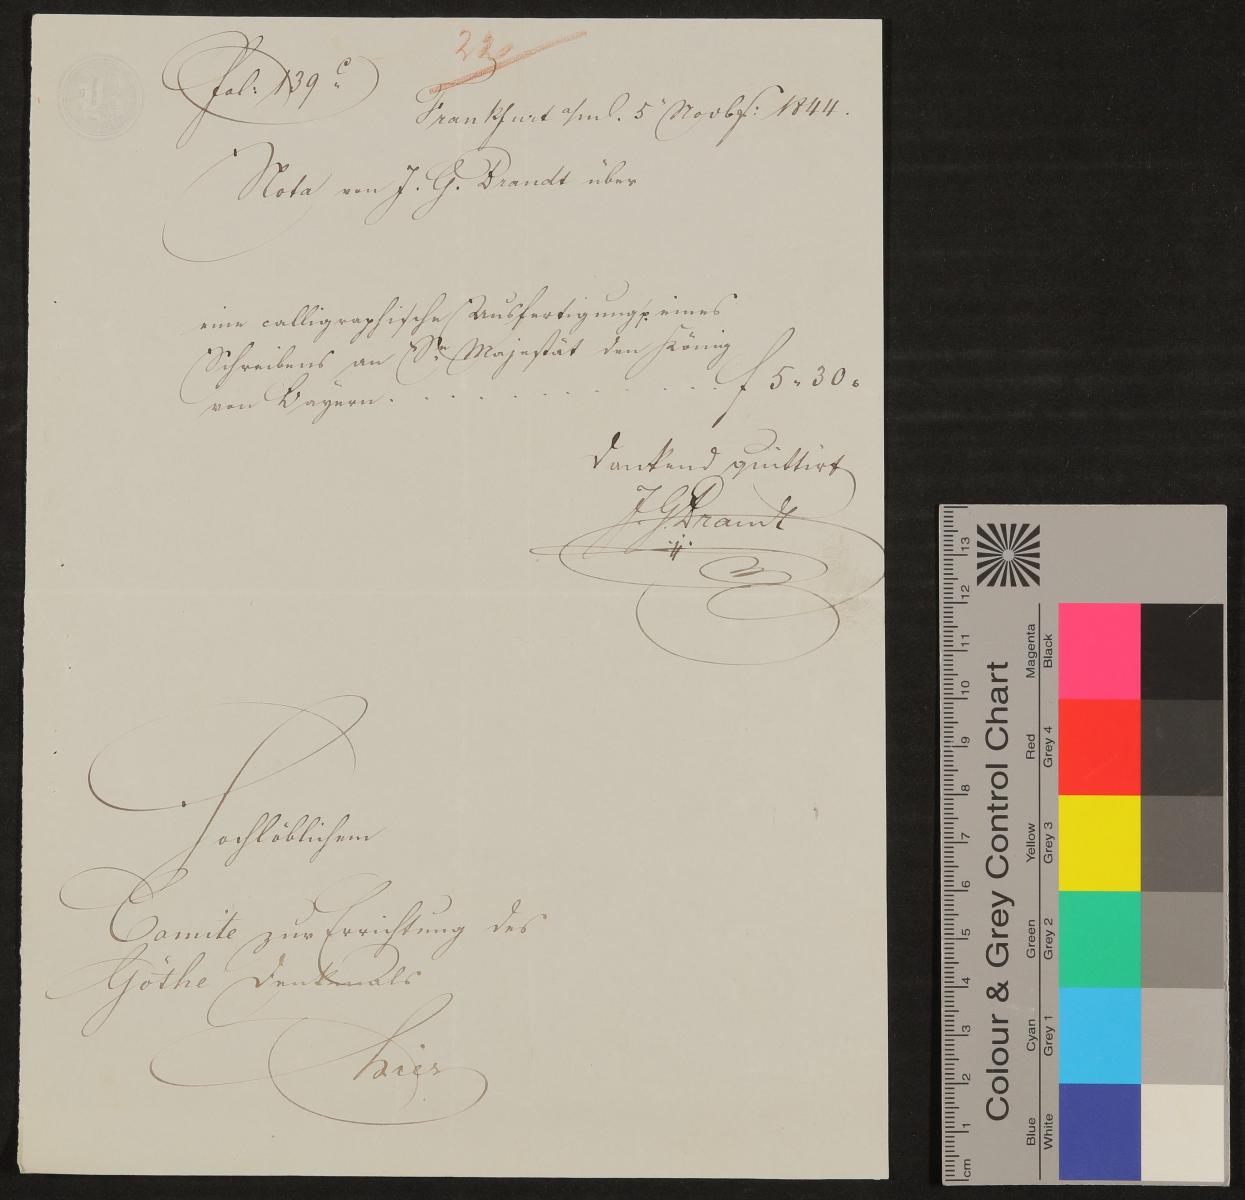 22
fol: 139 c
Frankfurt a/m. 5 Novbr: 1844.
Nota von J. G. Brandt über
eine calligraphische Ausfertigung eines
Schreibens an Se Majestät den König
von Bayern . . . . . . . . . . . . f 5 " 30.
dankend quittirt
J. G. Brandt
Hochlöblichem
Comite zur Errichtung des
Göthe Denkmals
hier
Colour & Grey Control Chart
Blue Cyan Green Yellow Red Magenta
White Grey 1 Grey 2 Grey 3 Grey 4 Black
cm 1 2 3 4 5 6 7 8 9 10 11 12 13